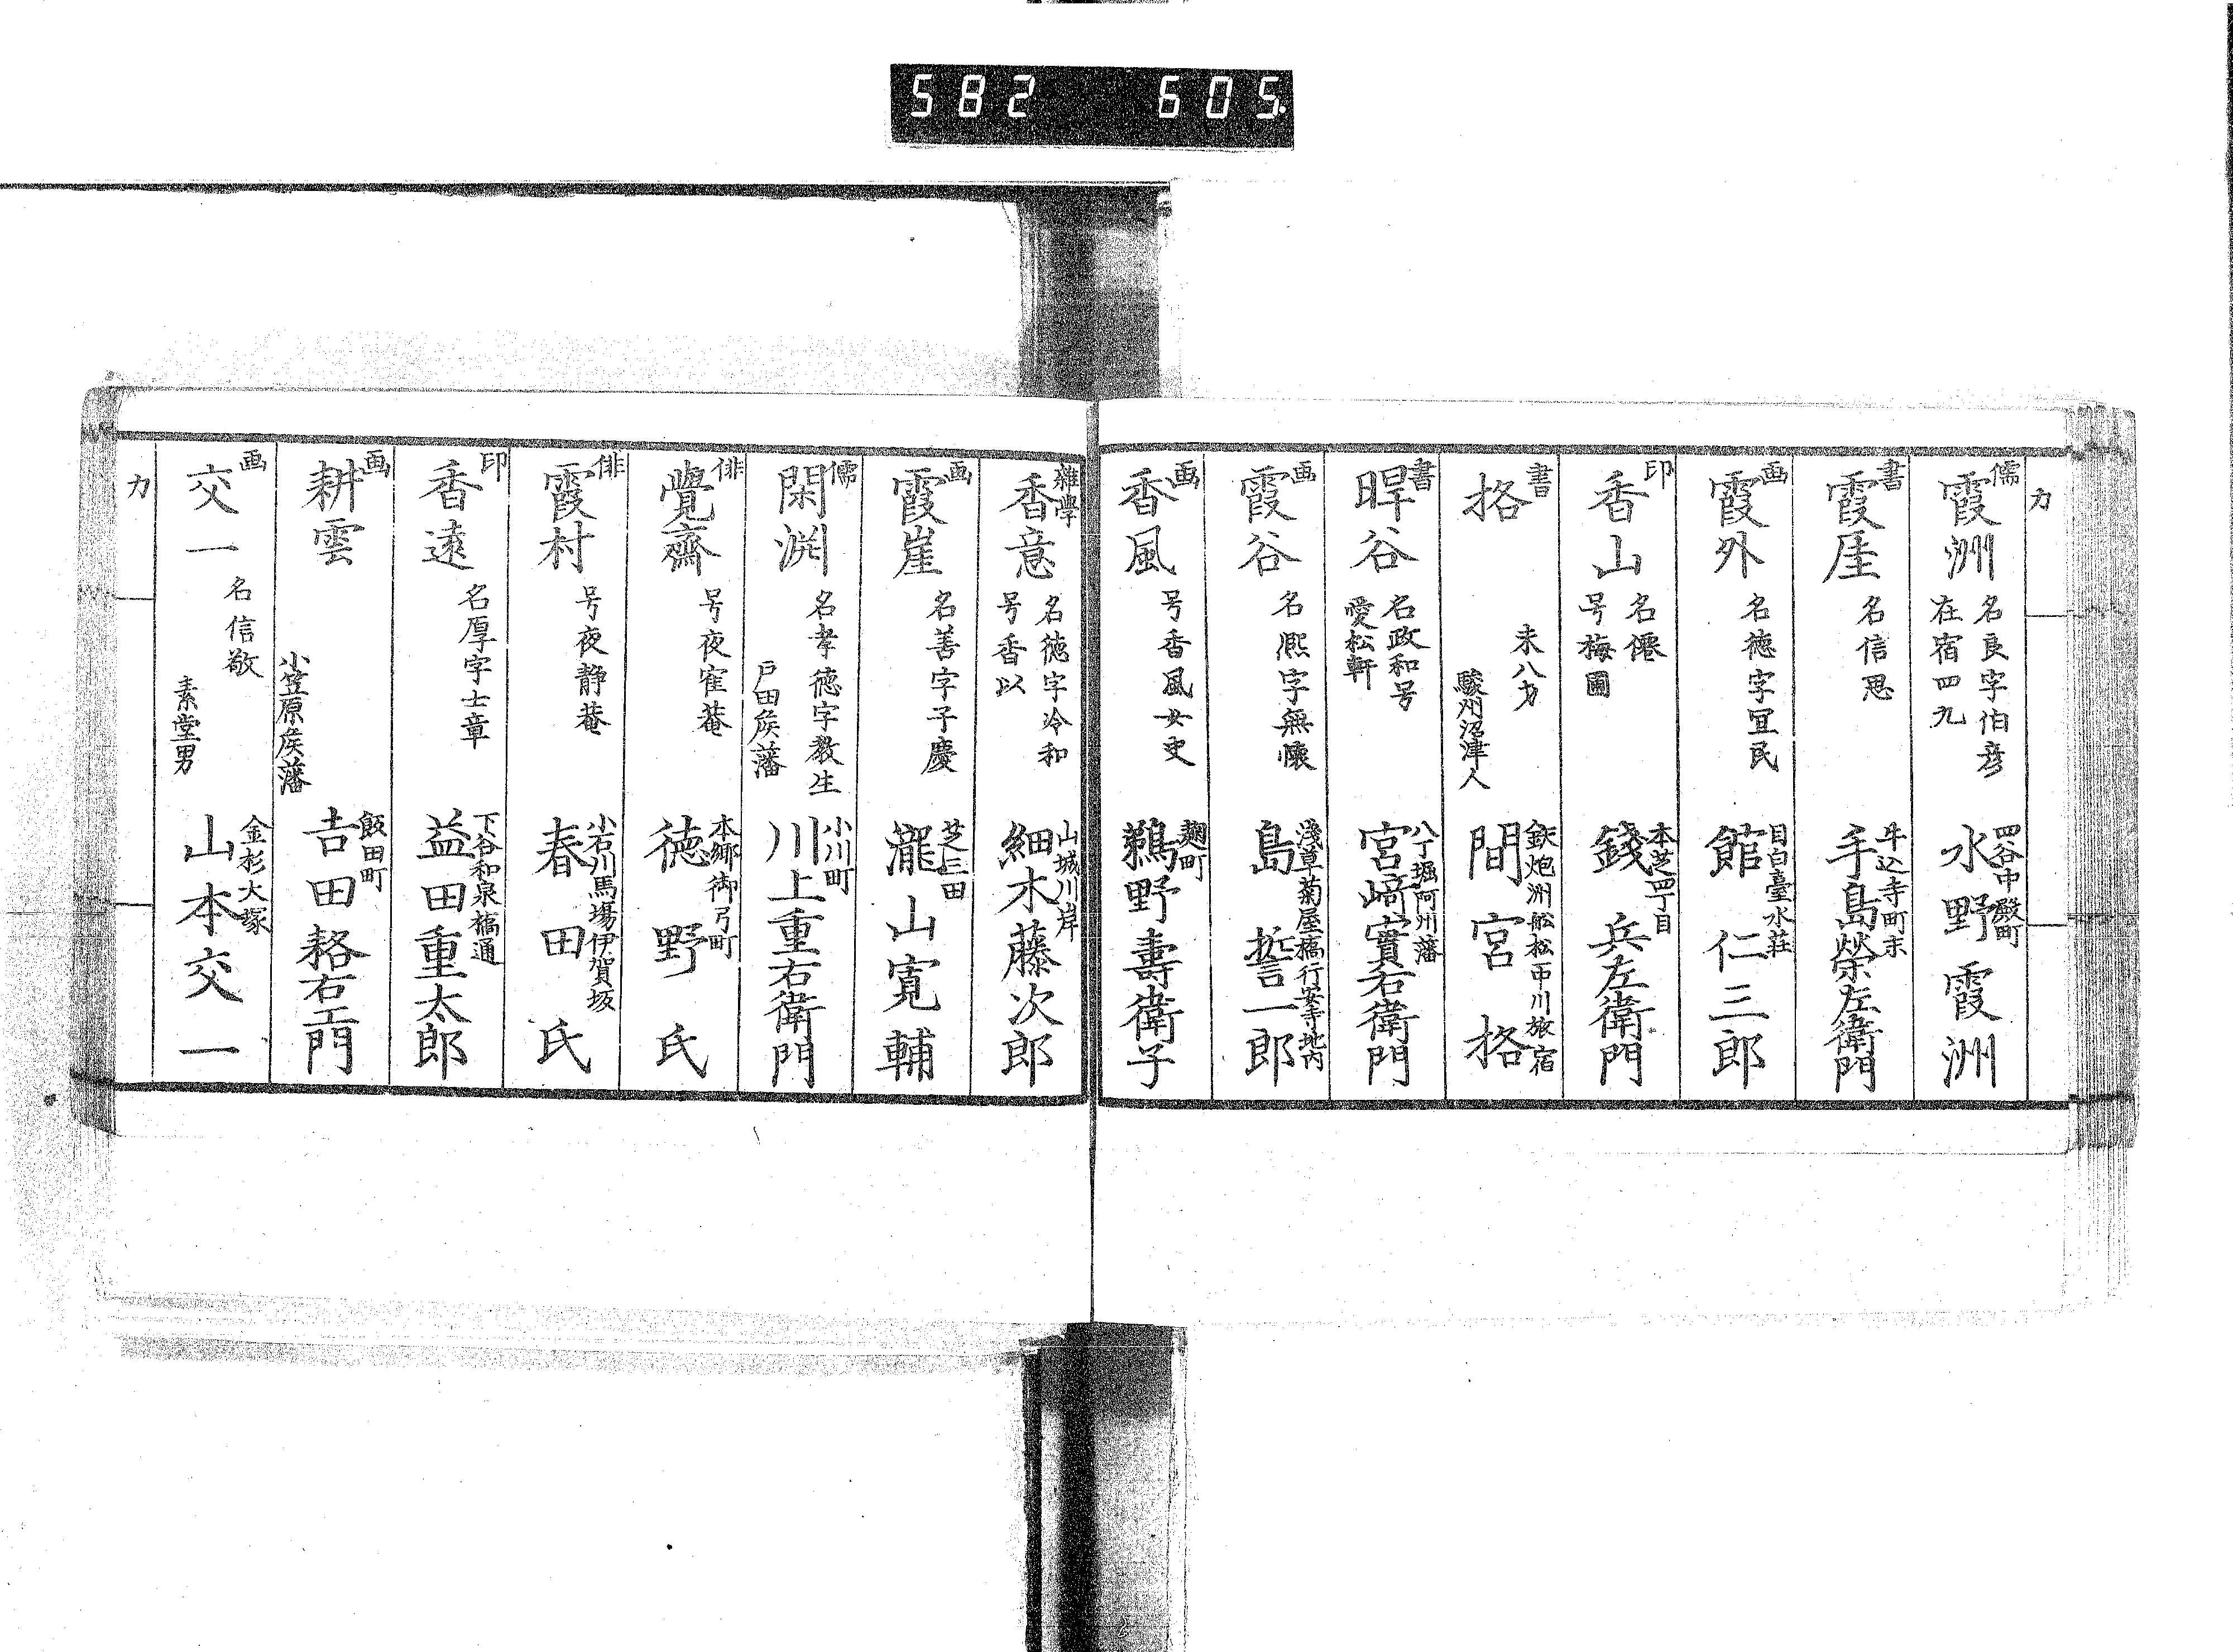 582 605.
カ
儒
霞洲
名良字伯彦
在宿四九
四谷中殿町
水野霞洲
書
霞厓
名信思
牛込寺町末
手島榮左衛門
画
霞外
名徳字宜民
目白臺水荘
館仁三郎
印
香山
名僊
号梅圃
本芝四丁目
錢兵左衛門
書
格
未八才
駿州沼津人
鉄炮洲舩松町中川旅宿
間宮格
書
睅谷
名政和号
愛松軒
八丁堀阿州藩
宮﨑實右衛門
画
霞谷
名凞字無懷
淺草菊屋橋行安寺地内
島誓一郎
画
香風
号香風女史
麹町
鵜野壽衛子
雜學
香意
名徳字冷和
号香以
山城川岸
細木藤次郎
画
霞崖
名善字子慶
芝三田
瀧山寛輔
儒
閑渕
名孝徳字教生
戸田矦藩
小川町
川上重右衛門
俳
覺齋
号夜雀菴
本郷御弓町
徳野氏
俳
霞村
号夜静菴
小石川馬場伊賀坂
春田氏
印
香遠
名厚字士章
下谷和泉橋通
益田重太郎
画
耕雲
小笠原矦藩
飯田町
吉田輅右エ門
画
交一
名信敬
素堂男
金杉大塚
山本交一
カ